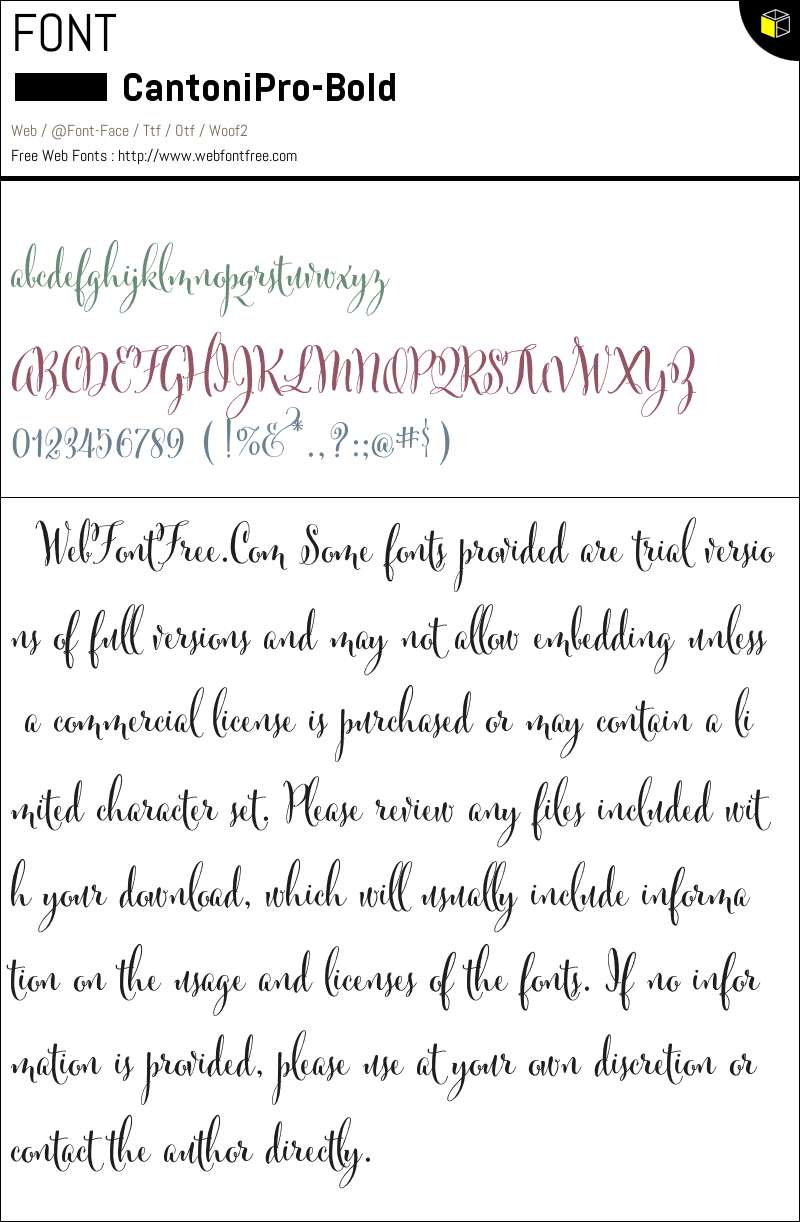 FONT
CantoniPro-Bold
Web / @Font-Face / Ttf / Otf / Woof2
Free Web Fonts : http://www.webfontfree.com
abcdefghijklmnopqrstuvwxyz
ABCDEFGHIJKLMNOPQRSTUVWXYZ
0123456789 (!%&*.,?:;@#$)
WebFontFree.Com Some fonts provided are trial versio
ns of full versions and may not allow embedding unless
a commercial license is purchased or may contain a li
mited character set. Please review any files included wit
h your download, which will usually include informa
tion on the usage and licenses of the fonts. If no infor
mation is provided, please use at your own discretion or
contact the author directly.